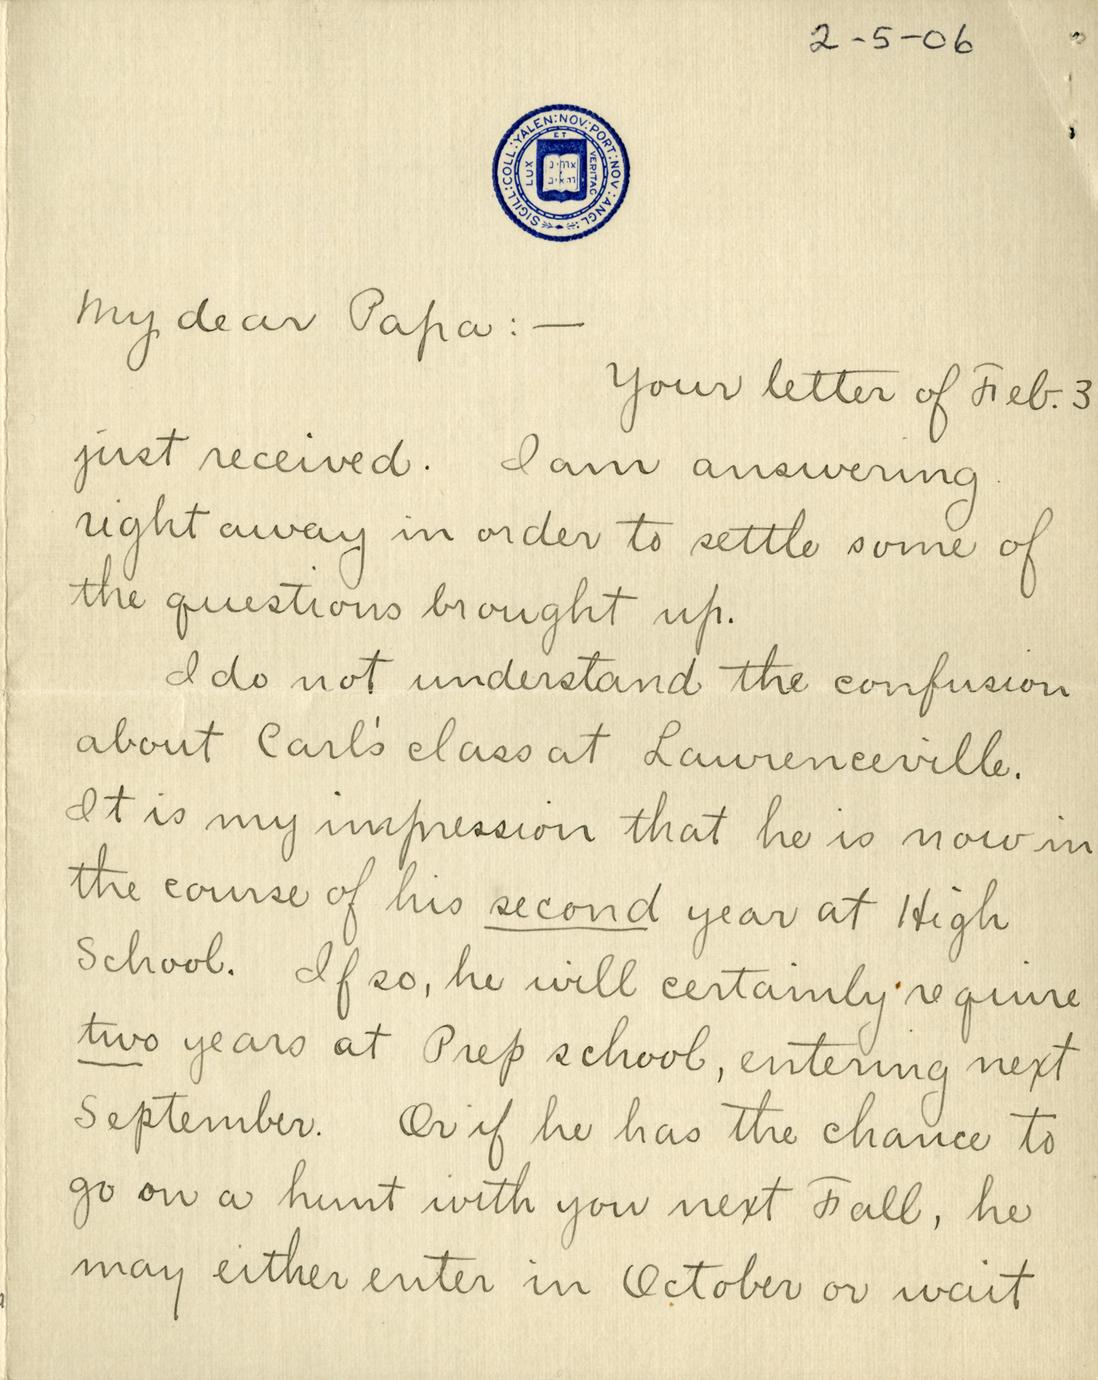 2-5-06
SIGILL:COLL:YALEN:NOV:PORT:NOV:ANGL:
LUX ET VERITAS
My dear Papa:—
Your letter of Feb. 3
just received. I am answering
right away in order to settle some of
the questions brought up.
I do not understand the confusion
about Carl's class at Lawrenceville.
It is my impression that he is now in
the course of his second year at High
School. If so, he will certainly require
two years at Prep school, entering next
September. Or if he has the chance to
go on a hunt with you next Fall, he
may either enter in October or wait